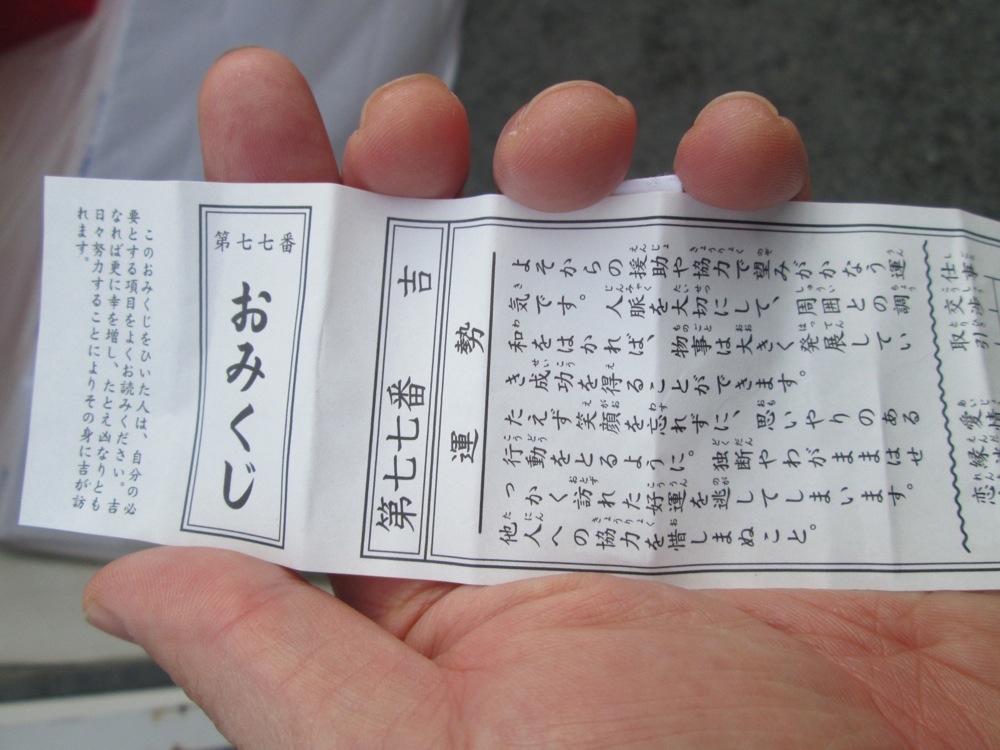 第七七番
おみくじ
このおみくじをひいた人は、自分の必
要とする項目をよくお読みください。吉
なれば更に幸を増し、たとえ凶なりとも
日々努力することによりその身に吉が訪
れます。
第七七番 吉
運勢
よそからの援助や協力で望みがかなう運
気です。人脈を大切にして、周囲との調
和をはかれば、物事は大きく発展してい
き成功を得ることができます。
たえず笑顔を忘れずに、思いやりのある
行動をとるように。独断やわがままはせ
っかく訪れた好運を逃してしまいます。
他人への協力を惜しまぬこと。
仕事
交渉
取引
愛情
縁
恋